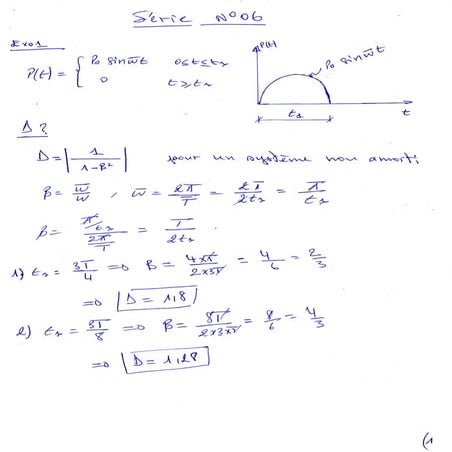 Série N°06
Exo1
P(t) = { P₀ sin w̄t 0≤t≤t₁
0 t≥t₁
P(t)
P₀ sin w̄t
t₁
t
Δ ?
D = | 1 / (1-B²) | pour un système non amorti
B = w̄/w , w̄ = 2π/T̄ = 2π/2t₁ = π/t₁
B = (π/t₁)/(2π/T) = T/2t₁
1) t₁ = 3T/4 => B = 4×T/2×3T = 4/6 = 2/3
=> D = 1,8
2) t₁ = 3T/8 => B = 8T/2×3×T = 8/6 = 4/3
=> D = 1,28
(1